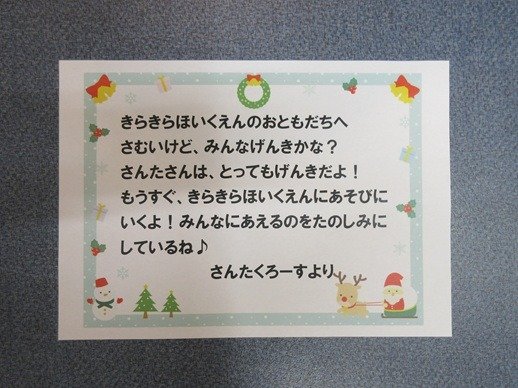 きらきらほいくえんのおともだちへ
さむいけど、みんなげんきかな？
さんたさんは、とってもげんきだよ！
もうすぐ、きらきらほいくえんにあそびに
いくよ！みんなにあえるのをたのしみに
しているね♪
さんたくろーすより